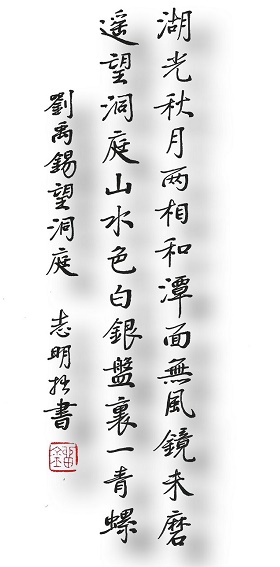 湖光秋月两相和潭面無風鏡未磨
遥望洞庭山水色白銀盤裏一青螺
劉禹錫望洞庭 志明拙書